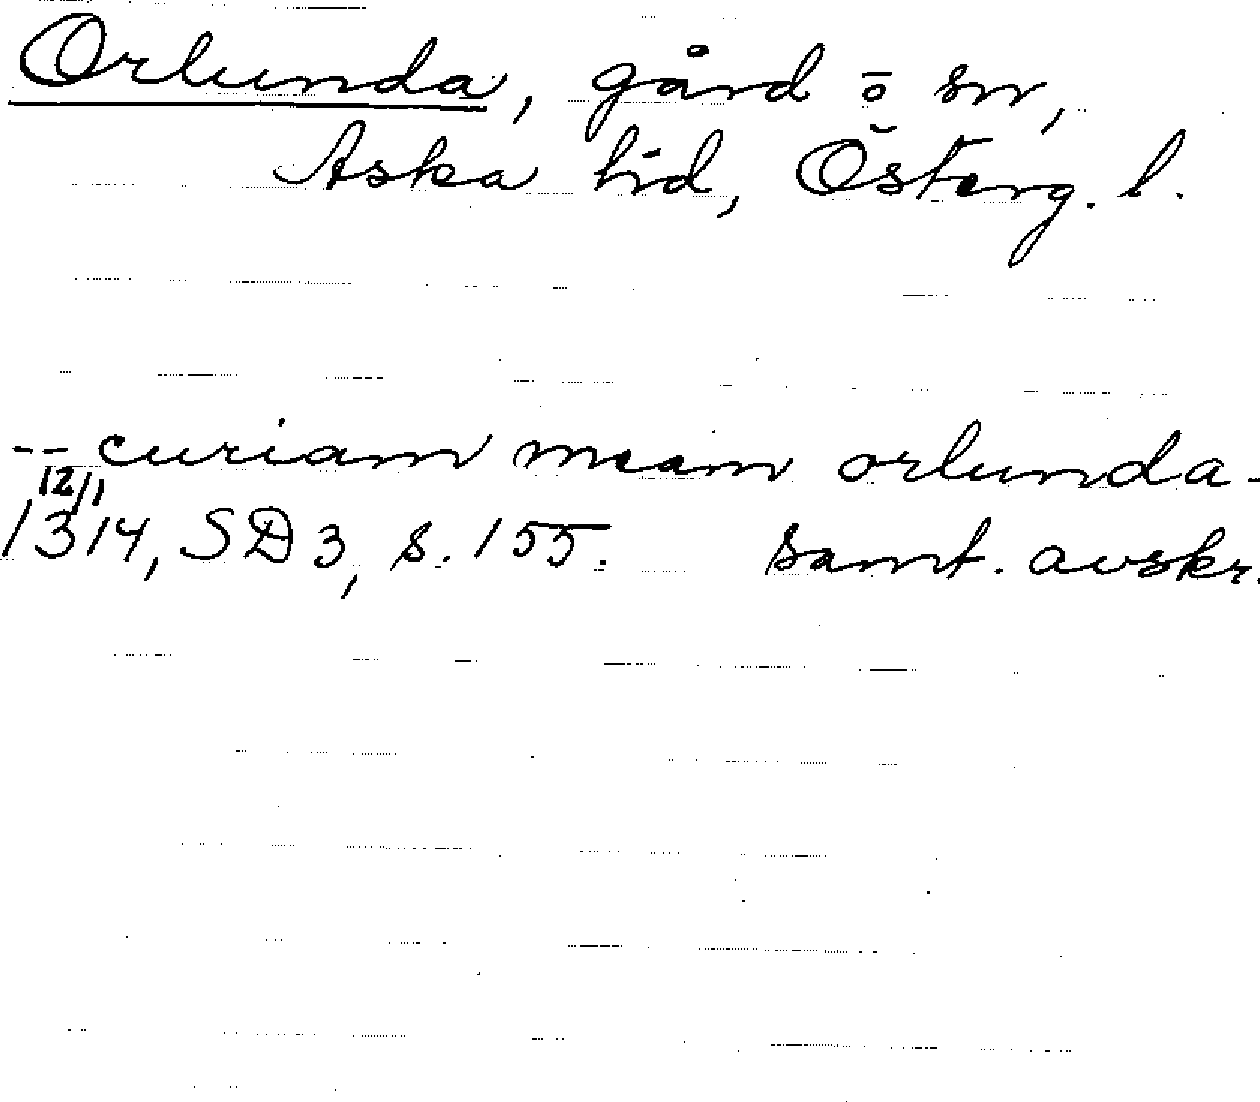 Orlunda, gård o sn,
Aska hd, Österg. l.
-- curiam meam orlunda -
12/1
1314, SD 3, s. 155. samt. avskr.